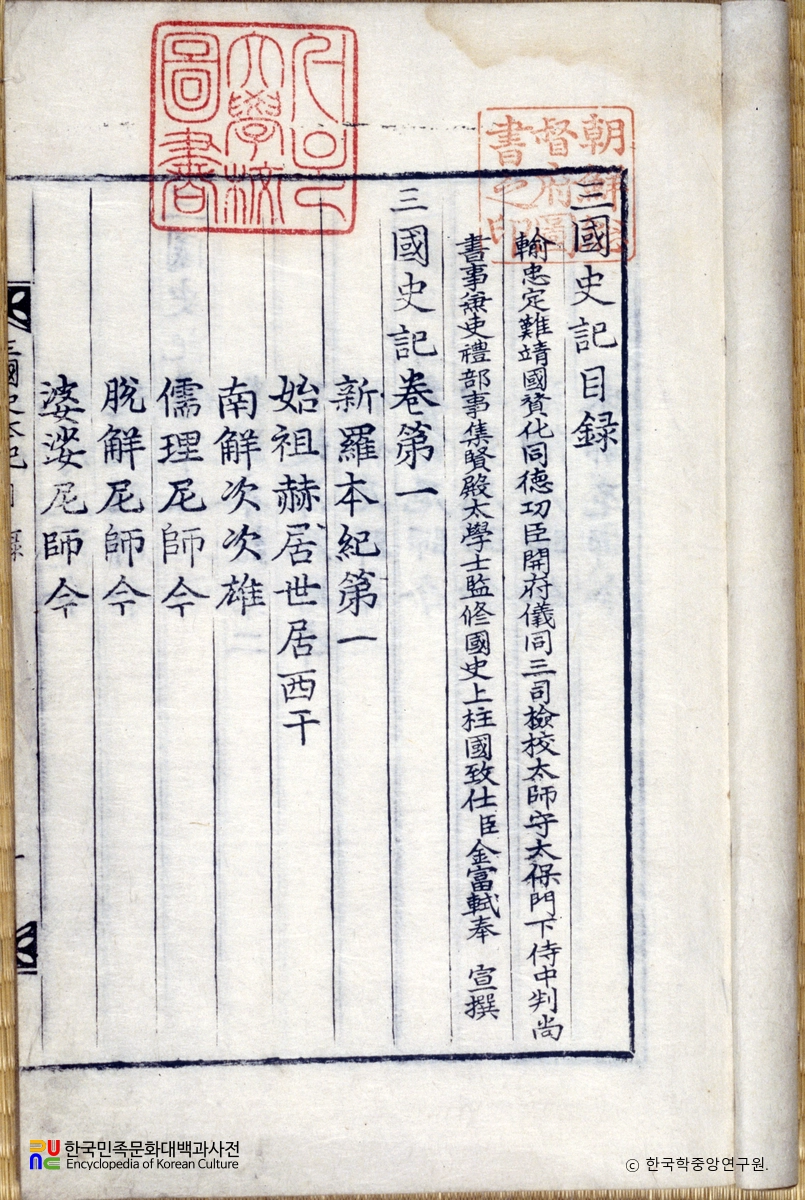 三國史記目録
輸忠定難靖國賛化同德功臣開府儀同三司檢校太師守太保門下侍中判尚
書事兼吏禮部事集賢殿太學士監修國史上柱國致仕臣金富軾奉 宣撰
三國史記卷第一
新羅本紀第一
始祖赫居世居西干
南解次次雄
儒理尼師今
脫解尼師今
婆娑尼師今
朝鮮總
督府圖
書之印
大學校
圖書
한국민족문화대백과사전
Encyclopedia of Korean Culture
ⓒ 한국학중앙연구원.